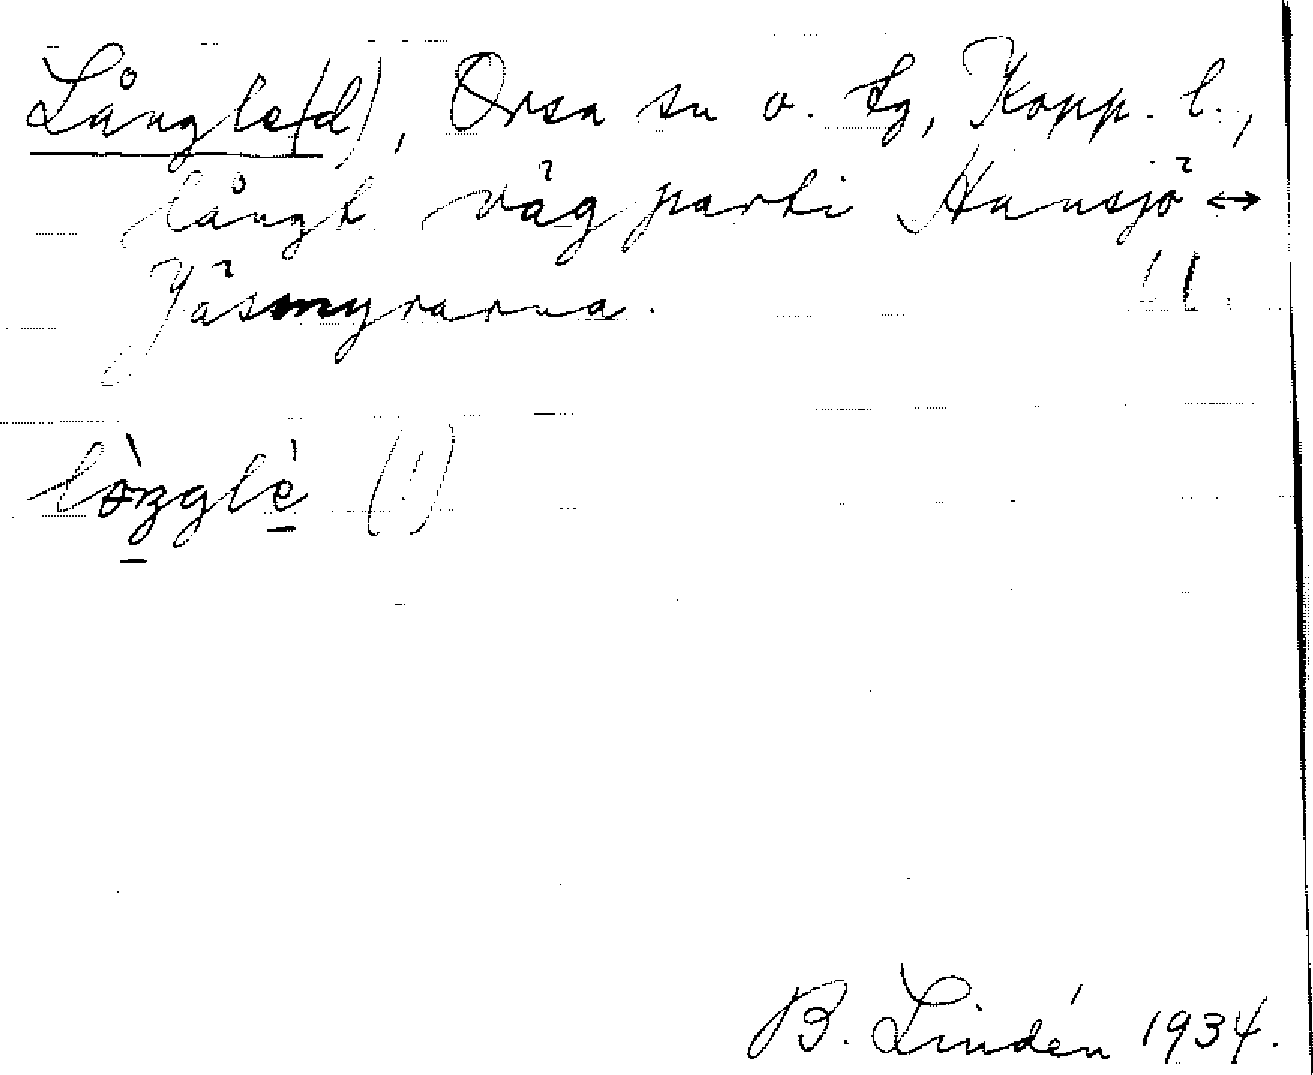 Långle(d), Orsa sn o. tg, Kopp. l.,
långt vägparti Hansjö ↔
Jäsmyrarna. 11.
(!)
B. Lindén 1934.